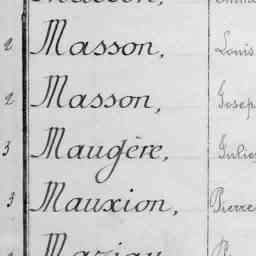 2 Masson, Louis
2 Masson, Josep
3 Maugère, Julie
3 Mauxion, Pierre